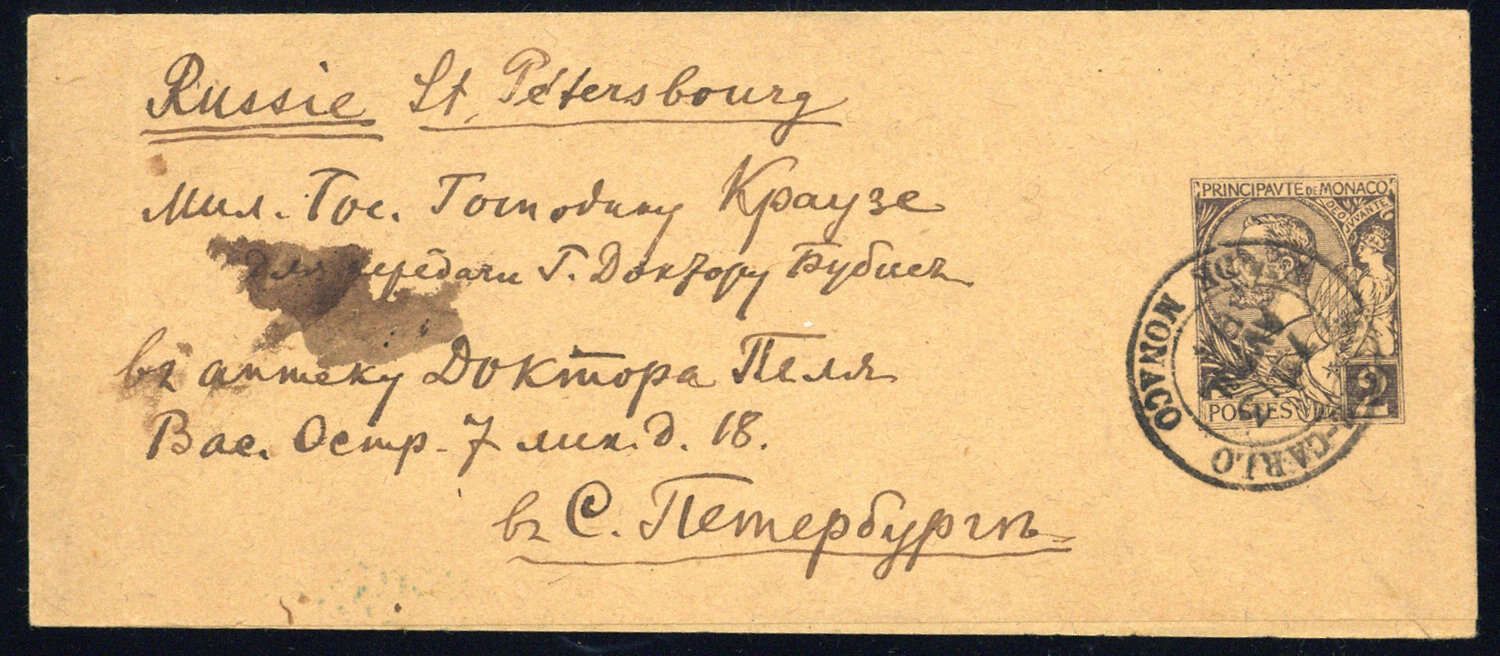 Russie St. Pétersbourg
Мил. Гос. Господину Краузе
для передачи Г. Доктору
въ аптеку Доктора Пеля
Вас. Остр. 7 лин. д. 18.
въ С. Петербургѣ
PRINCIPAVTE DE MONACO
DEO JUVANTE
POSTES 2
MONACO